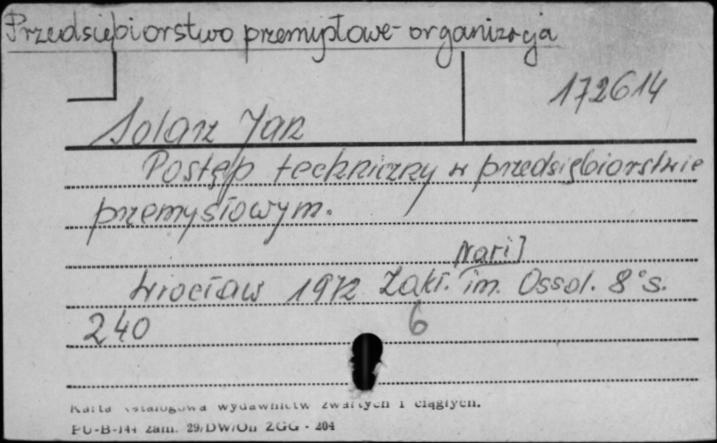 Przedsiębiorstwo przemysłowe - organizacja
172614
Solarz Jan
Postęp techniczny w przedsiębiorstwie
przemysłowym.
Nar.]
Wrocław 1972 Zakł. im. Ossol. 8° s.
240 6
Karta katalogowa wydawnictw zwartych i ciągłych.
PU-B-144 zam. 29/DW/Oh ZGG - 204